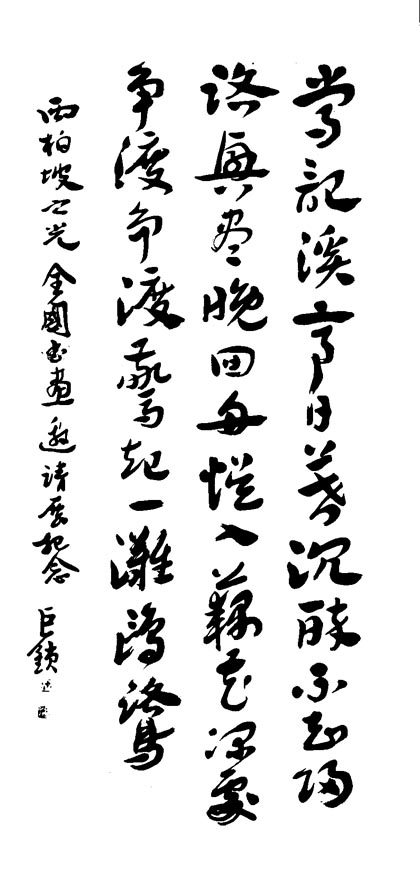 常記溪亭日暮沉醉不知歸
路興尽晚回舟悮入藕花深處
争渡争渡驚起一灘鷗鷺
西柏坡之光全國書畫邀請展紀念 巨鎖